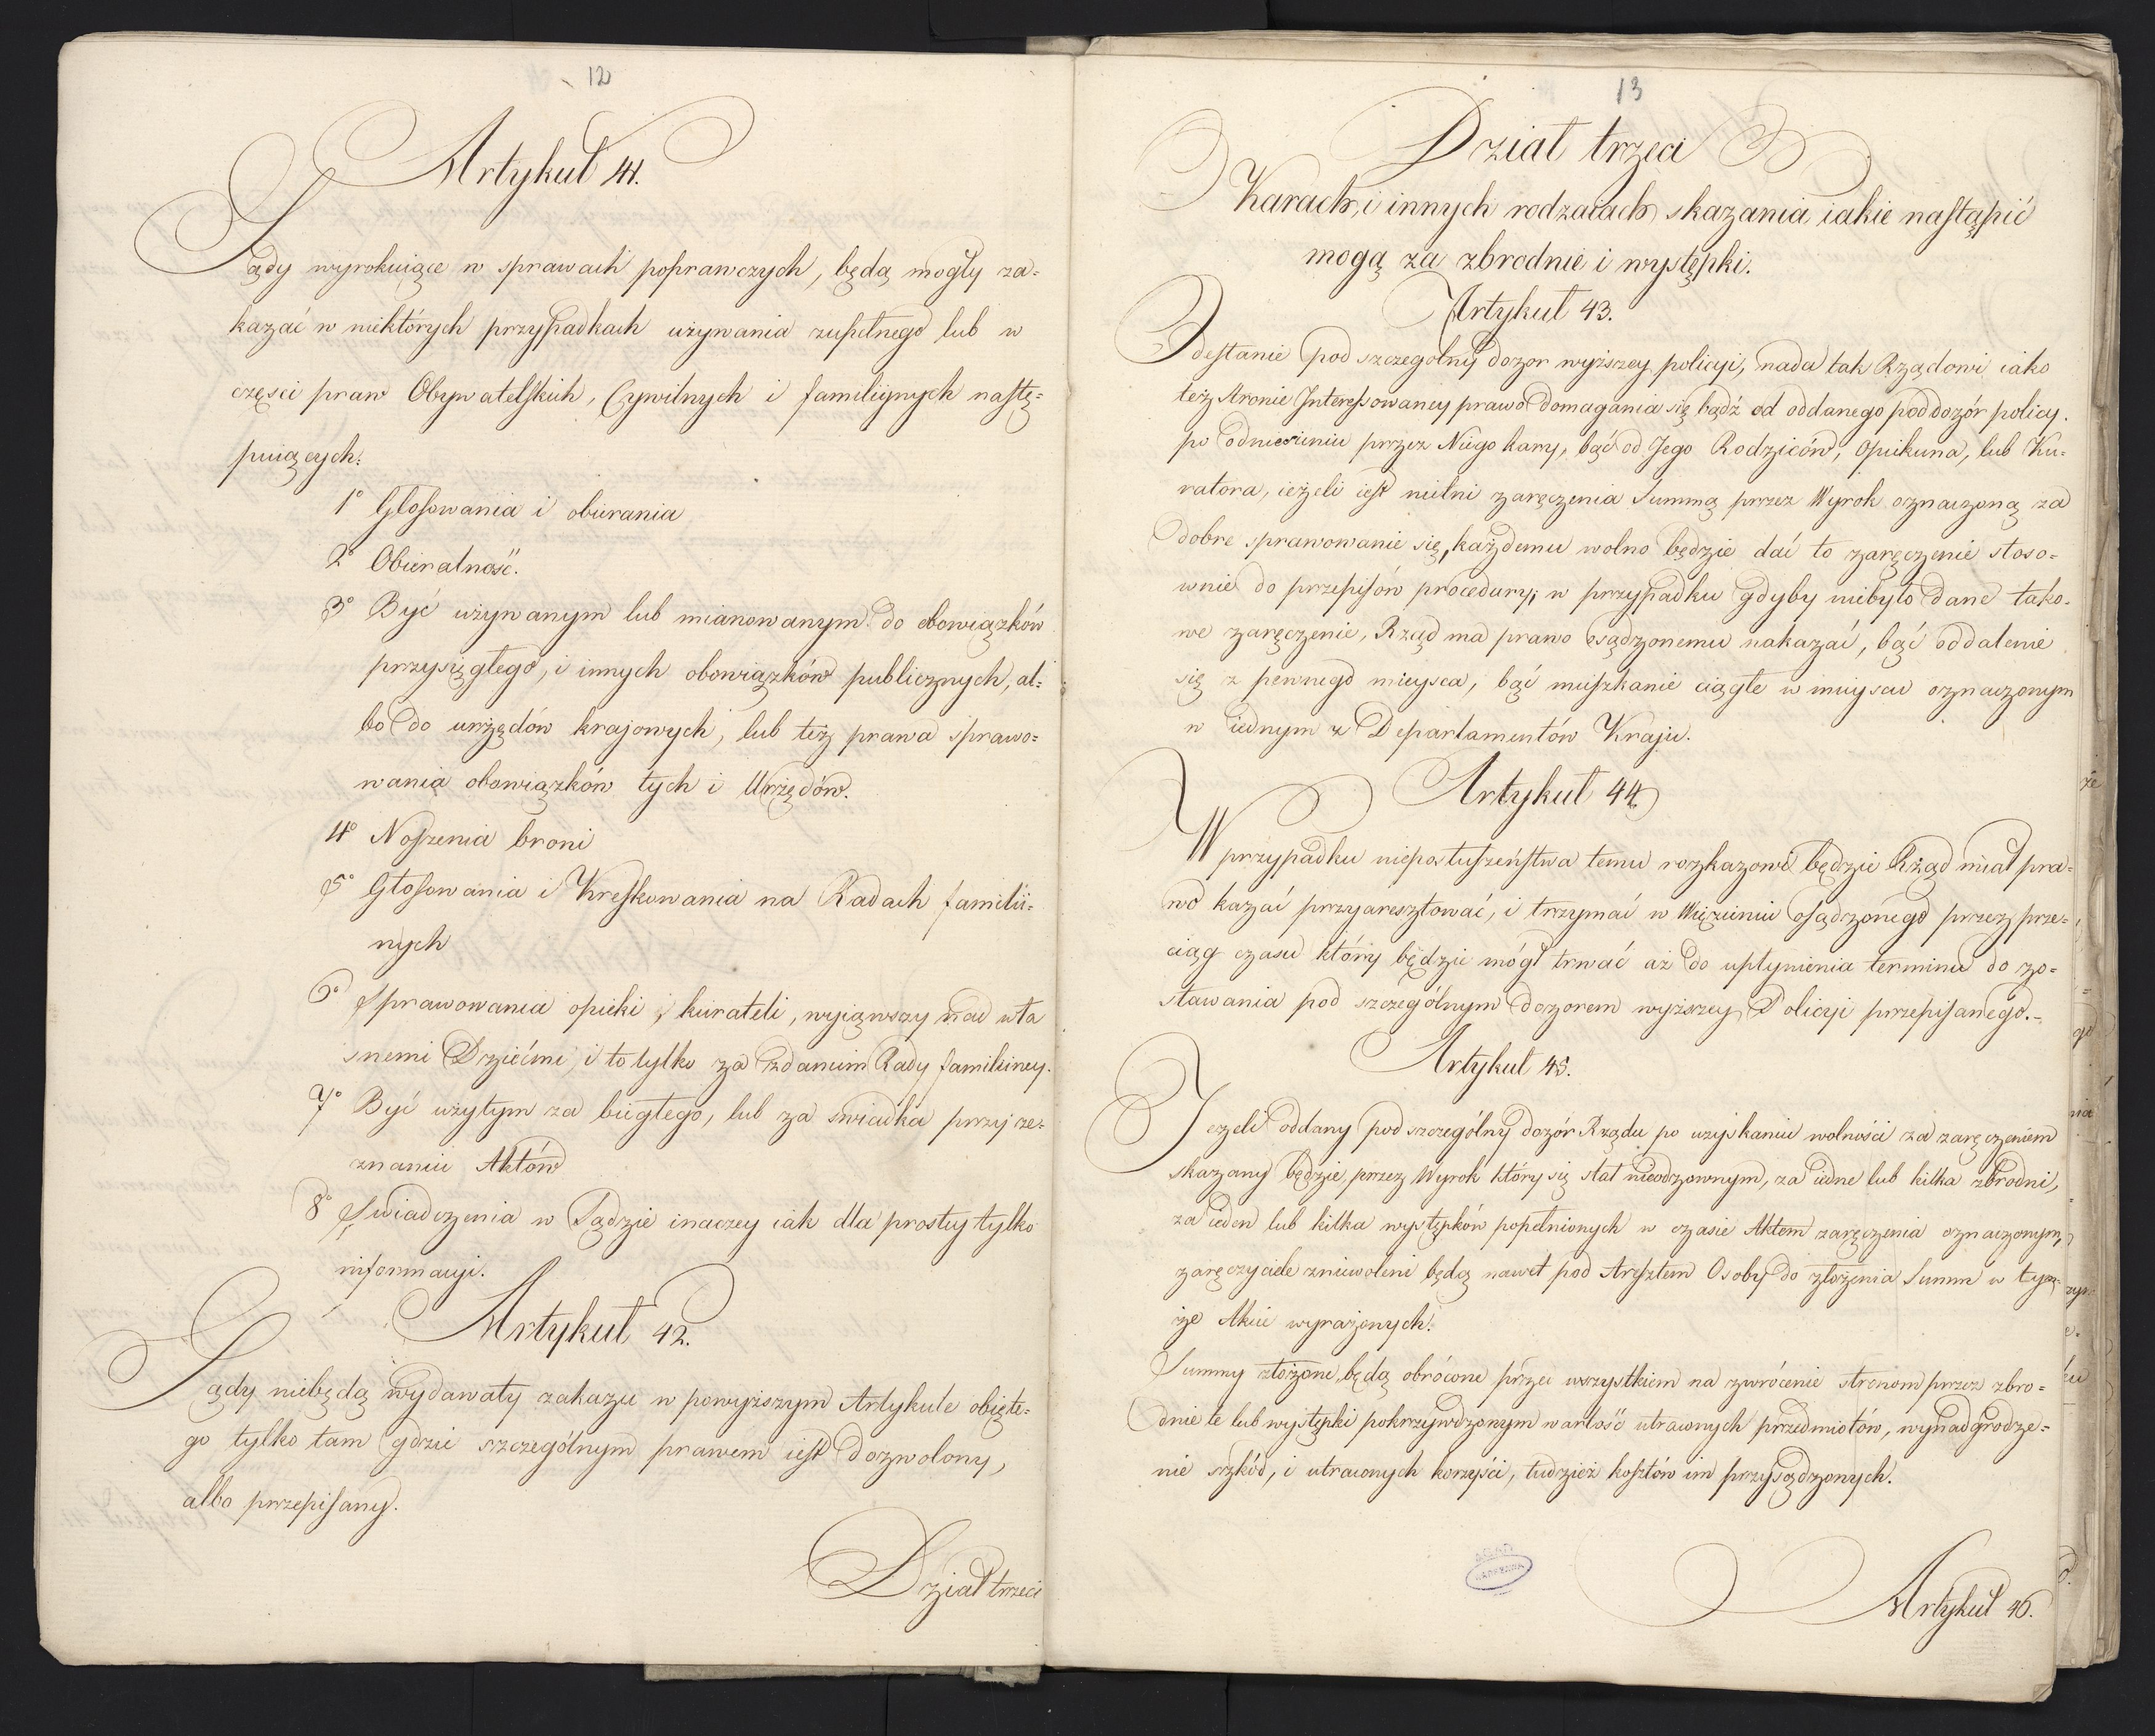 12
Artykuł 41.
Sądy wyrokuiące w sprawach poprawczych, będą mogły za-
kazać w niektórych przypadkach używania zupełnego lub w
częsci praw Obywatelskich, Cywilnych i familiynych nastę-
puiących:
1° Głosowania i obierania
2° Obieralność.
3° Być używanym lub mianowanym do obowiązków
przysięgłego, i innych obowiązków publicznych, al-
bo do urzędów krajowych, lub też prawa sprawo-
wania obowiązków tych i Urzędów.
4° Noszenia broni
5° Głosowania i Kreskowania na Radach familii-
nych
6° Sprawowania opieki i kurateli, wyiąwszy nad wła
snemi Dziećmi, i to tylko za zdaniem Rady familiiney.
7° Być użytym za biegłego, lub za swiadka przy ze-
znaniu Aktów
8° Swiadczenia w Sądzie inaczey iak dla prostey tylko
informacyi.
Artykuł 42.
Sądy niebędą wydawały zakazu w powyższym Artykule obięte-
go tylko tam gdzie szczególnym prawem iest dozwolony,
albo przepisany.
Dział trzeci
13
Dział trzeci
Karach, i innych rodzaiach skazania iakie nastąpić
mogą za zbrodnie i występki.
Artykuł 43.
Odesłanie pod szczegolny dozor wyższey policyi, nada tak Rządowi iako
też stronie Interessowaney prawo domagania się bądź od oddanego pod dozór policy.
po odniesieniu przez Niego kary, bąć od Jego Rodziców, Opiekuna, lub Ku-
ratora, ieżeli iest nieletni zaręczenia Summą przez Wyrok oznaczoną za
dobre sprawowanie się, każdemu wolno będzie dać to zaręczenie stoso-
wnie do przepisów procedury; w przypadku gdyby niebyło dane tako-
we zaręczenie, Rząd ma prawo osądzonemu nakazać, bąć oddalenie
się z pewnego mieysca, bąć mieszkanie ciągłe w mieyscu oznaczonym
w iednym z Departamentów Kraju.
Artykuł 44
W przypadku nieposłuszeństwa temu rozkazowi będzie Rząd miał pra-
wo kazać przyaresztować, i trzymać w Więzieniu osądzonego przez prze-
ciąg czasu który będzie mógł trwać aż do upłynienia terminu do zo-
stawania pod szczególnym dozorem wyższey Policyi przepisanego.-
Artykuł 45.
Jeżeli oddany pod szczególny dozór Rządu po uzyskaniu wolności za zaręczeniem
skazany będzie, przez Wyrok który się stał nieodzownym, za iedne lub kilka zbrodni,
za ieden lub kilka występków popełnionych w czasie Aktem zaręczenia oznaczonym,
zaręczyciele zniewoleni będą nawet pod Aresztem Osoby do złożenia Summ w tym-
że Akcie wyrażonych.
Summy złożone będą obrócone przed wszystkiem na zwrócenie stronom przez zbro-
dnie te lub występki pokrzywdzonym wartość utraconych przedmiotów, wynadgrodze-
nie szkód, i utraconych korzyści, tudzież kosztów im przysądzonych.
Artykuł 46.